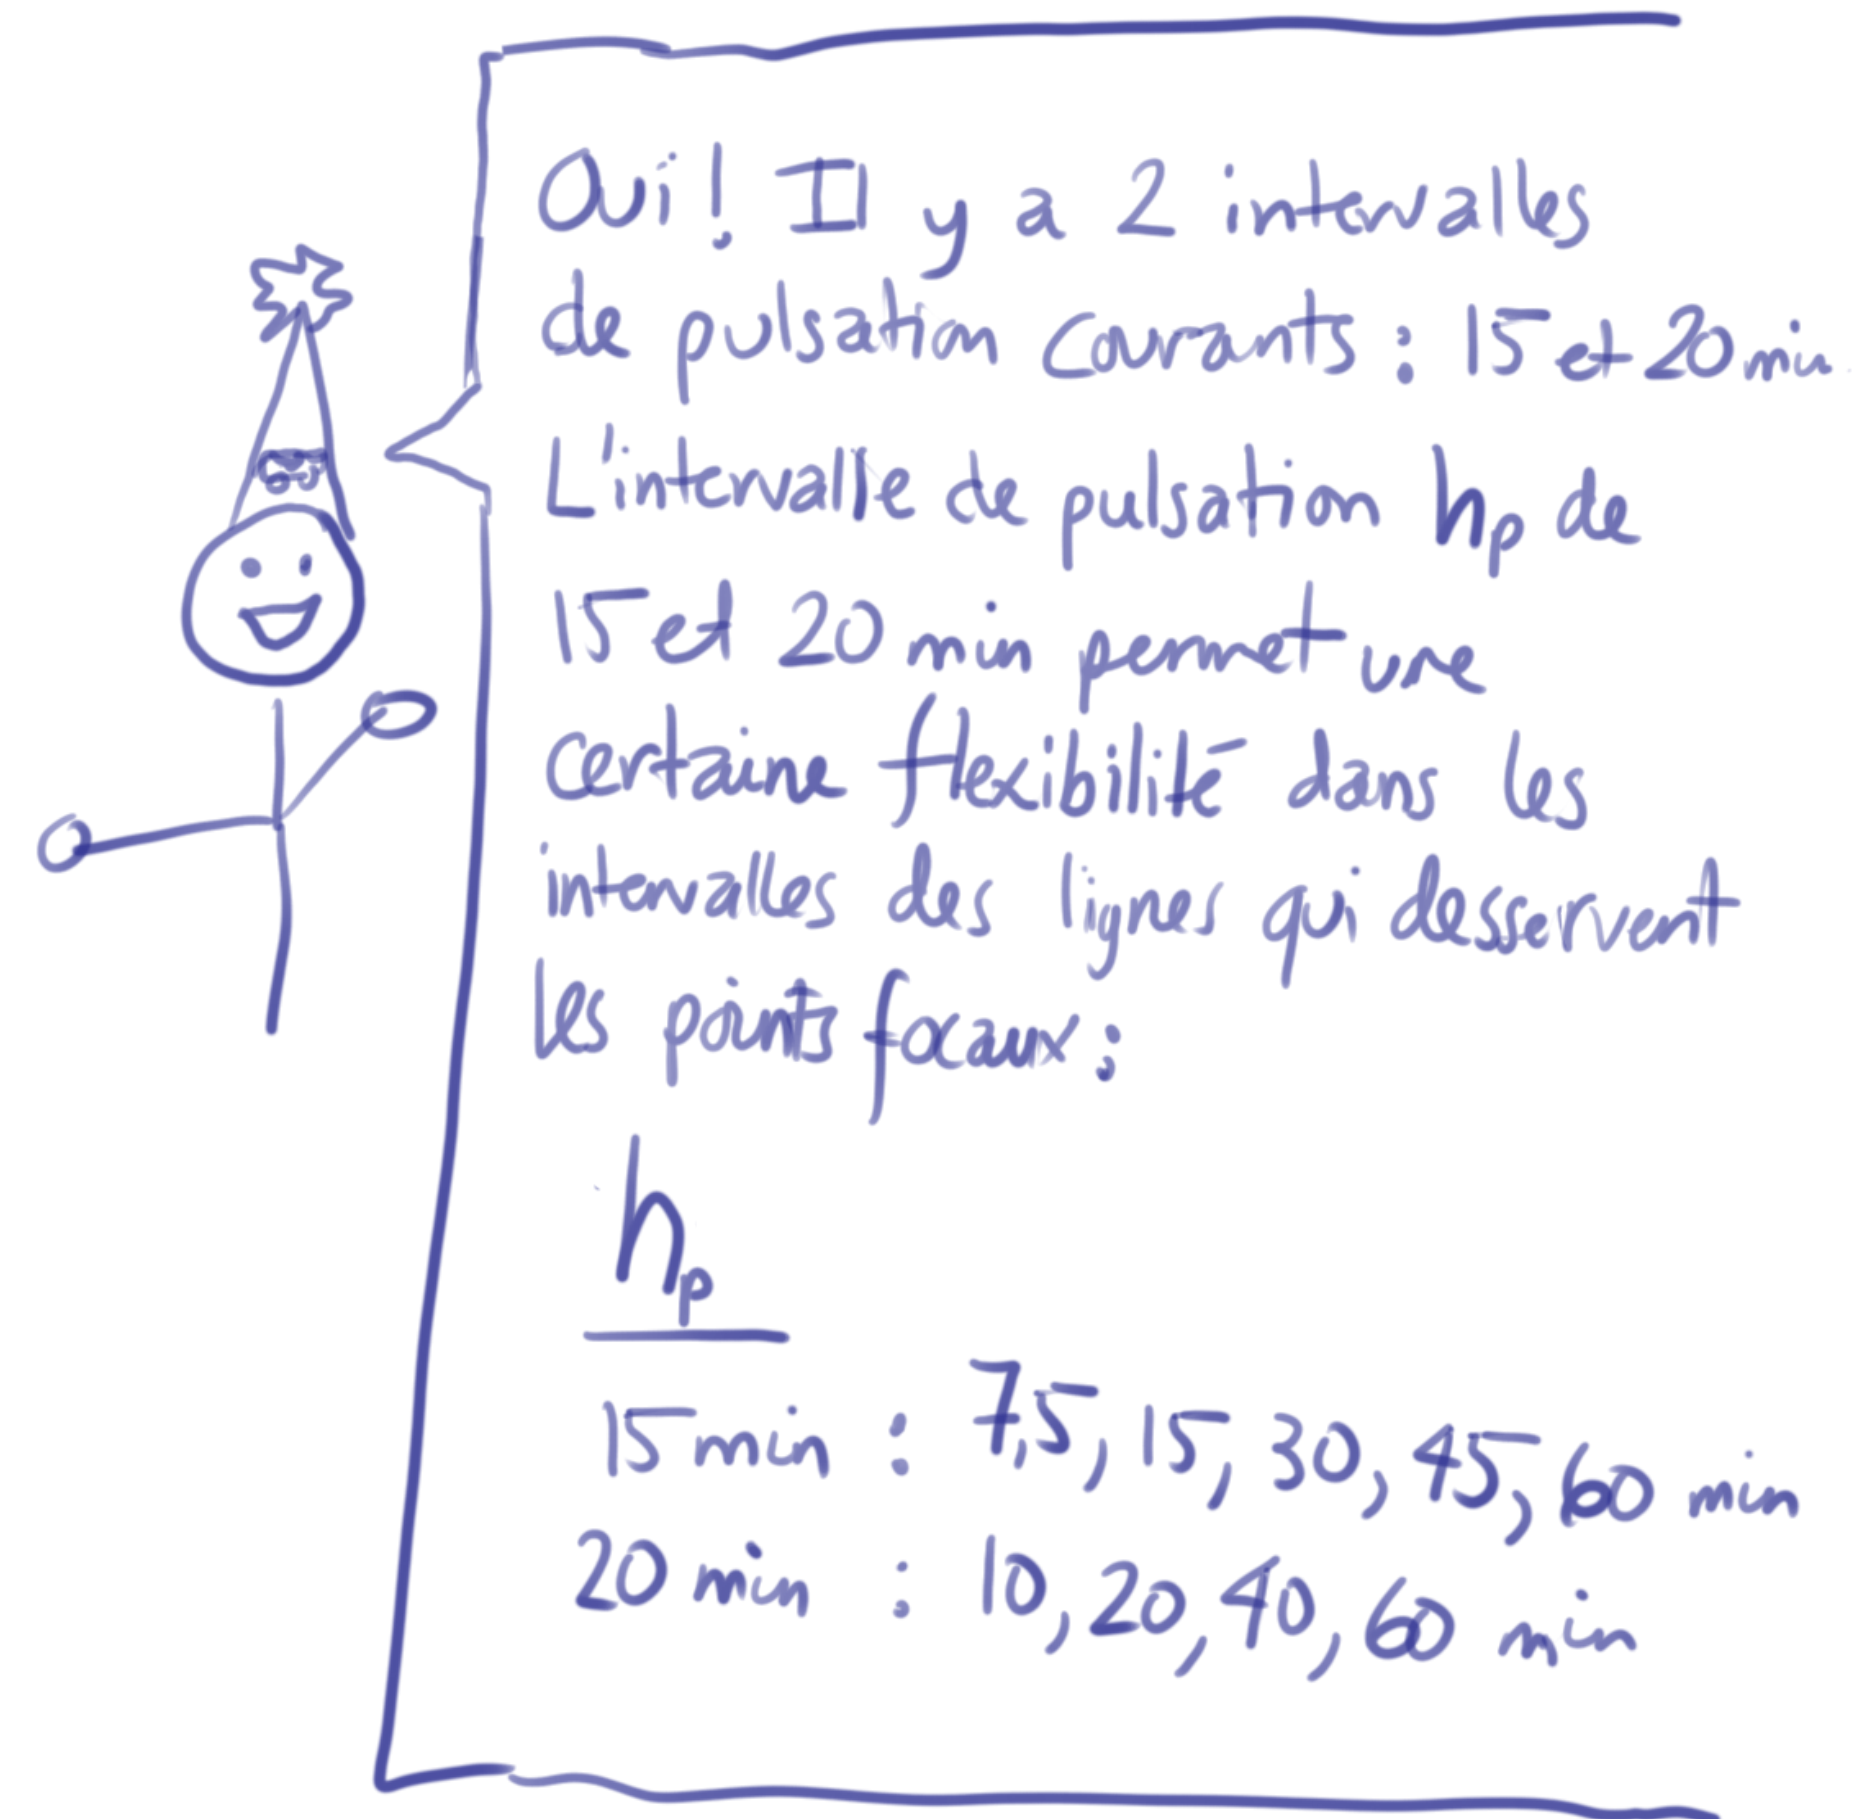 Oui! Il y a 2 intervalles
de pulsation courants : 15 et 20 min
L'intervalle de pulsation hp de
15 et 20 min permet une
certaine flexibilité dans les
intervalles des lignes qui desservent
les points focaux :
hp
15 min : 7,5, 15, 30, 45, 60 min
20 min : 10, 20, 40, 60 min